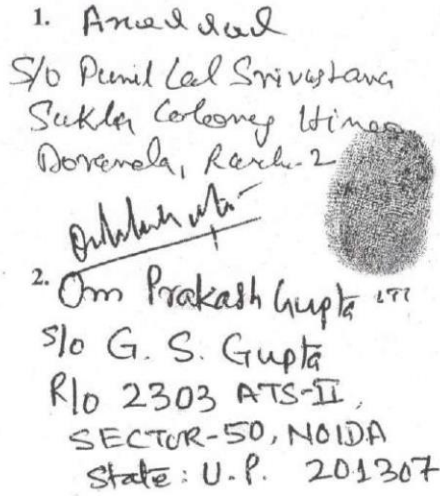 1. Anand Lal
S/o Punil Lal Srivastava
Sukla Colony Hinoo
Doranda, Ranchi-2
2. Om Prakash Gupta
S/o G. S. Gupta
R/o 2303 ATS-II,
SECTOR-50, NOIDA
State: U.P. 201307